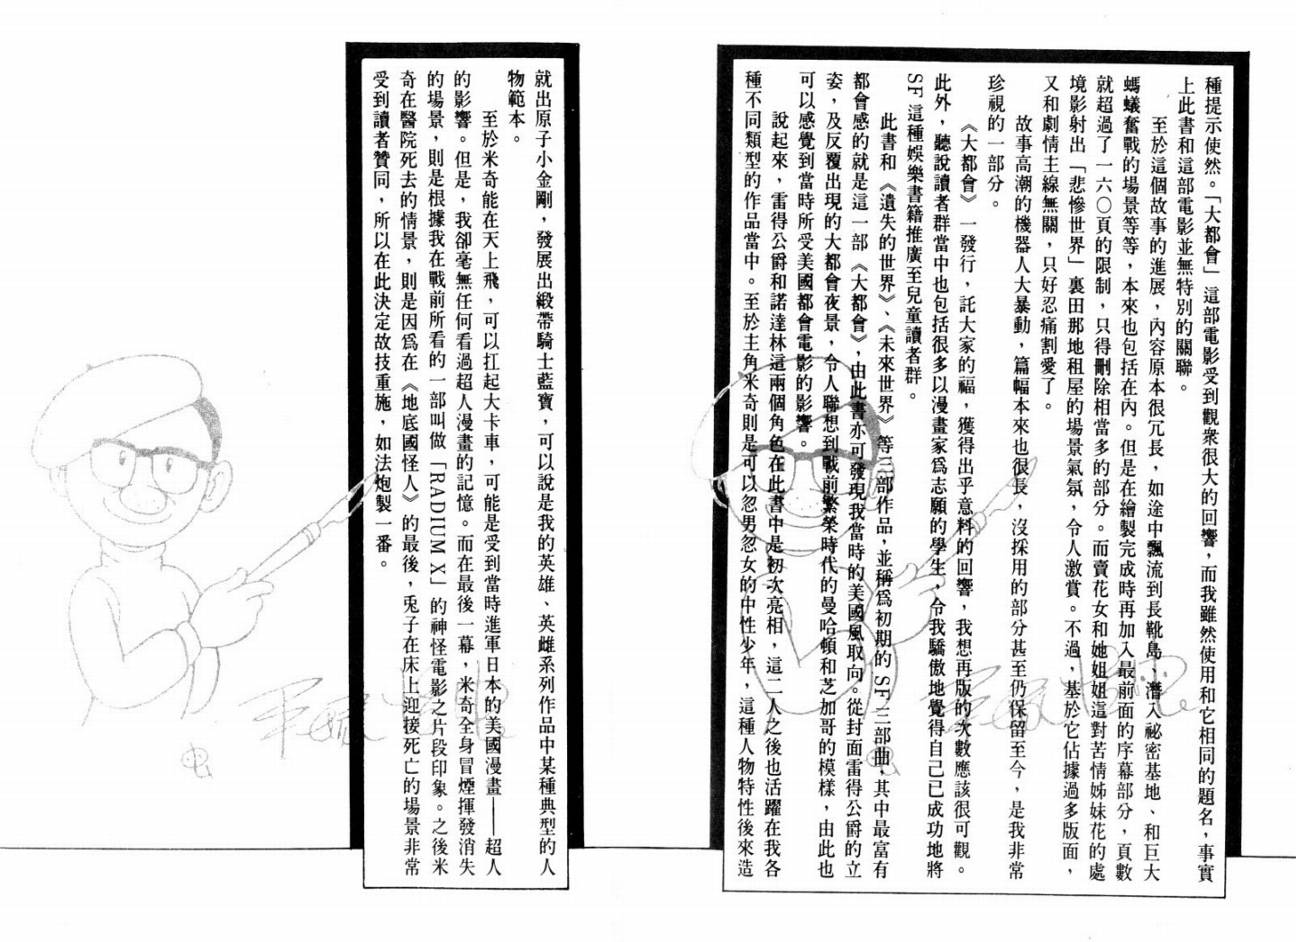 種提示使然。「大都會」這部電影受到觀衆很大的回響，而我雖然使用和它相同的題名，事實
上此書和這部電影並無特別的關聯。
至於這個故事的進展，內容原本很冗長，如途中飄流到長靴島、潛入祕密基地、和巨大
螞蟻奮戰的場景等等，本來也包括在內。但是在繪製完成時再加入最前面的序幕部分，頁數
就超過了一六〇頁的限制，只得刪除相當多的部分。而賣花女和她姐姐這對苦情姊妹花的處
境影射出「悲慘世界」裏田那地租屋的場景氣氛，令人激賞。不過，基於它佔據過多版面，
又和劇情主線無關，只好忍痛割愛了。
故事高潮的機器人大暴動，篇幅本來也很長，沒採用的部分甚至仍保留至今，是我非常
珍視的一部分。
《大都會》一發行，託大家的福，獲得出乎意料的回響，我想再版的次數應該很可觀。
此外，聽說讀者群當中也包括很多以漫畫家爲志願的學生，令我驕傲地覺得自己已成功地將
SF這種娛樂書籍推廣至兒童讀者群。
此書和《遺失的世界》、《未來世界》等三部作品，並稱爲初期的SF三部曲，其中最富有
都會感的就是這一部《大都會》，由此書亦可發現我當時的美國風取向。從封面雷得公爵的立
姿，及反覆出現的大都會夜景，令人聯想到戰前繁榮時代的曼哈頓和芝加哥的模樣，由此也
可以感覺到當時所受美國都會電影的影響。
說起來，雷得公爵和諾達林這兩個角色在此書中是初次亮相，這二人之後也活躍在我各
種不同類型的作品當中。至於主角米奇則是可以忽男忽女的中性少年，這種人物特性後來造
就出原子小金剛，發展出緞帶騎士藍寶，可以說是我的英雄、英雌系列作品中某種典型的人
物範本。
至於米奇能在天上飛，可以扛起大卡車，可能是受到當時進軍日本的美國漫畫——超人
的影響。但是，我卻毫無任何看過超人漫畫的記憶。而在最後一幕，米奇全身冒煙揮發消失
的場景，則是根據我在戰前所看的一部叫做「RADIUM X」的神怪電影之片段印象。之後米
奇在醫院死去的情景，則是因爲在《地底國怪人》的最後，兎子在床上迎接死亡的場景非常
受到讀者贊同，所以在此決定故技重施，如法炮製一番。